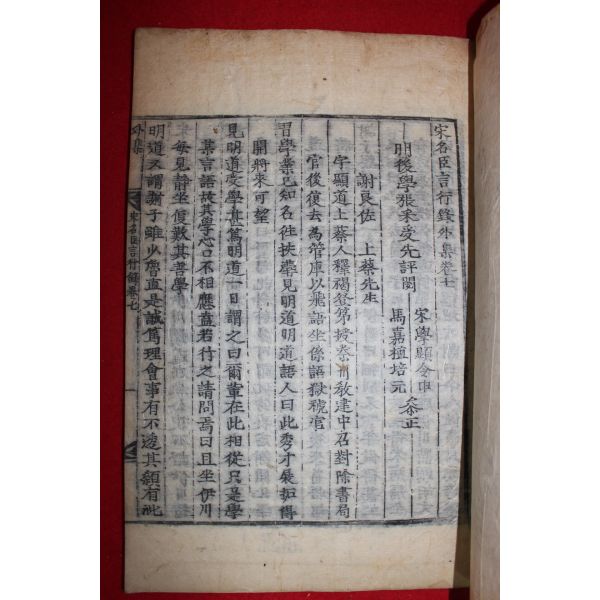 宋名臣言行錄外集卷七
明後學張采受先評閱
宋學顯令申
馬嘉植培元
叅正
謝良佐 上蔡先生
字顯道上蔡人釋褐登第授秦州敎建中召對除書局
官後復去爲筦庫以飛語坐係詔獄褫官
習學業已知名徃扶溝見明道明道語人曰此秀才展拓得
開將來可望
見明道受學甚篤明道一日謂之曰爾輩在此相從只是學
某言語故其學心口不相應盍若行之請問焉曰且坐伊川
每見靜坐便歎其善學
明道又謂謝子雖少魯直是誠篤理會事有不透其顙有泚
外集
宋名臣言行錄卷七